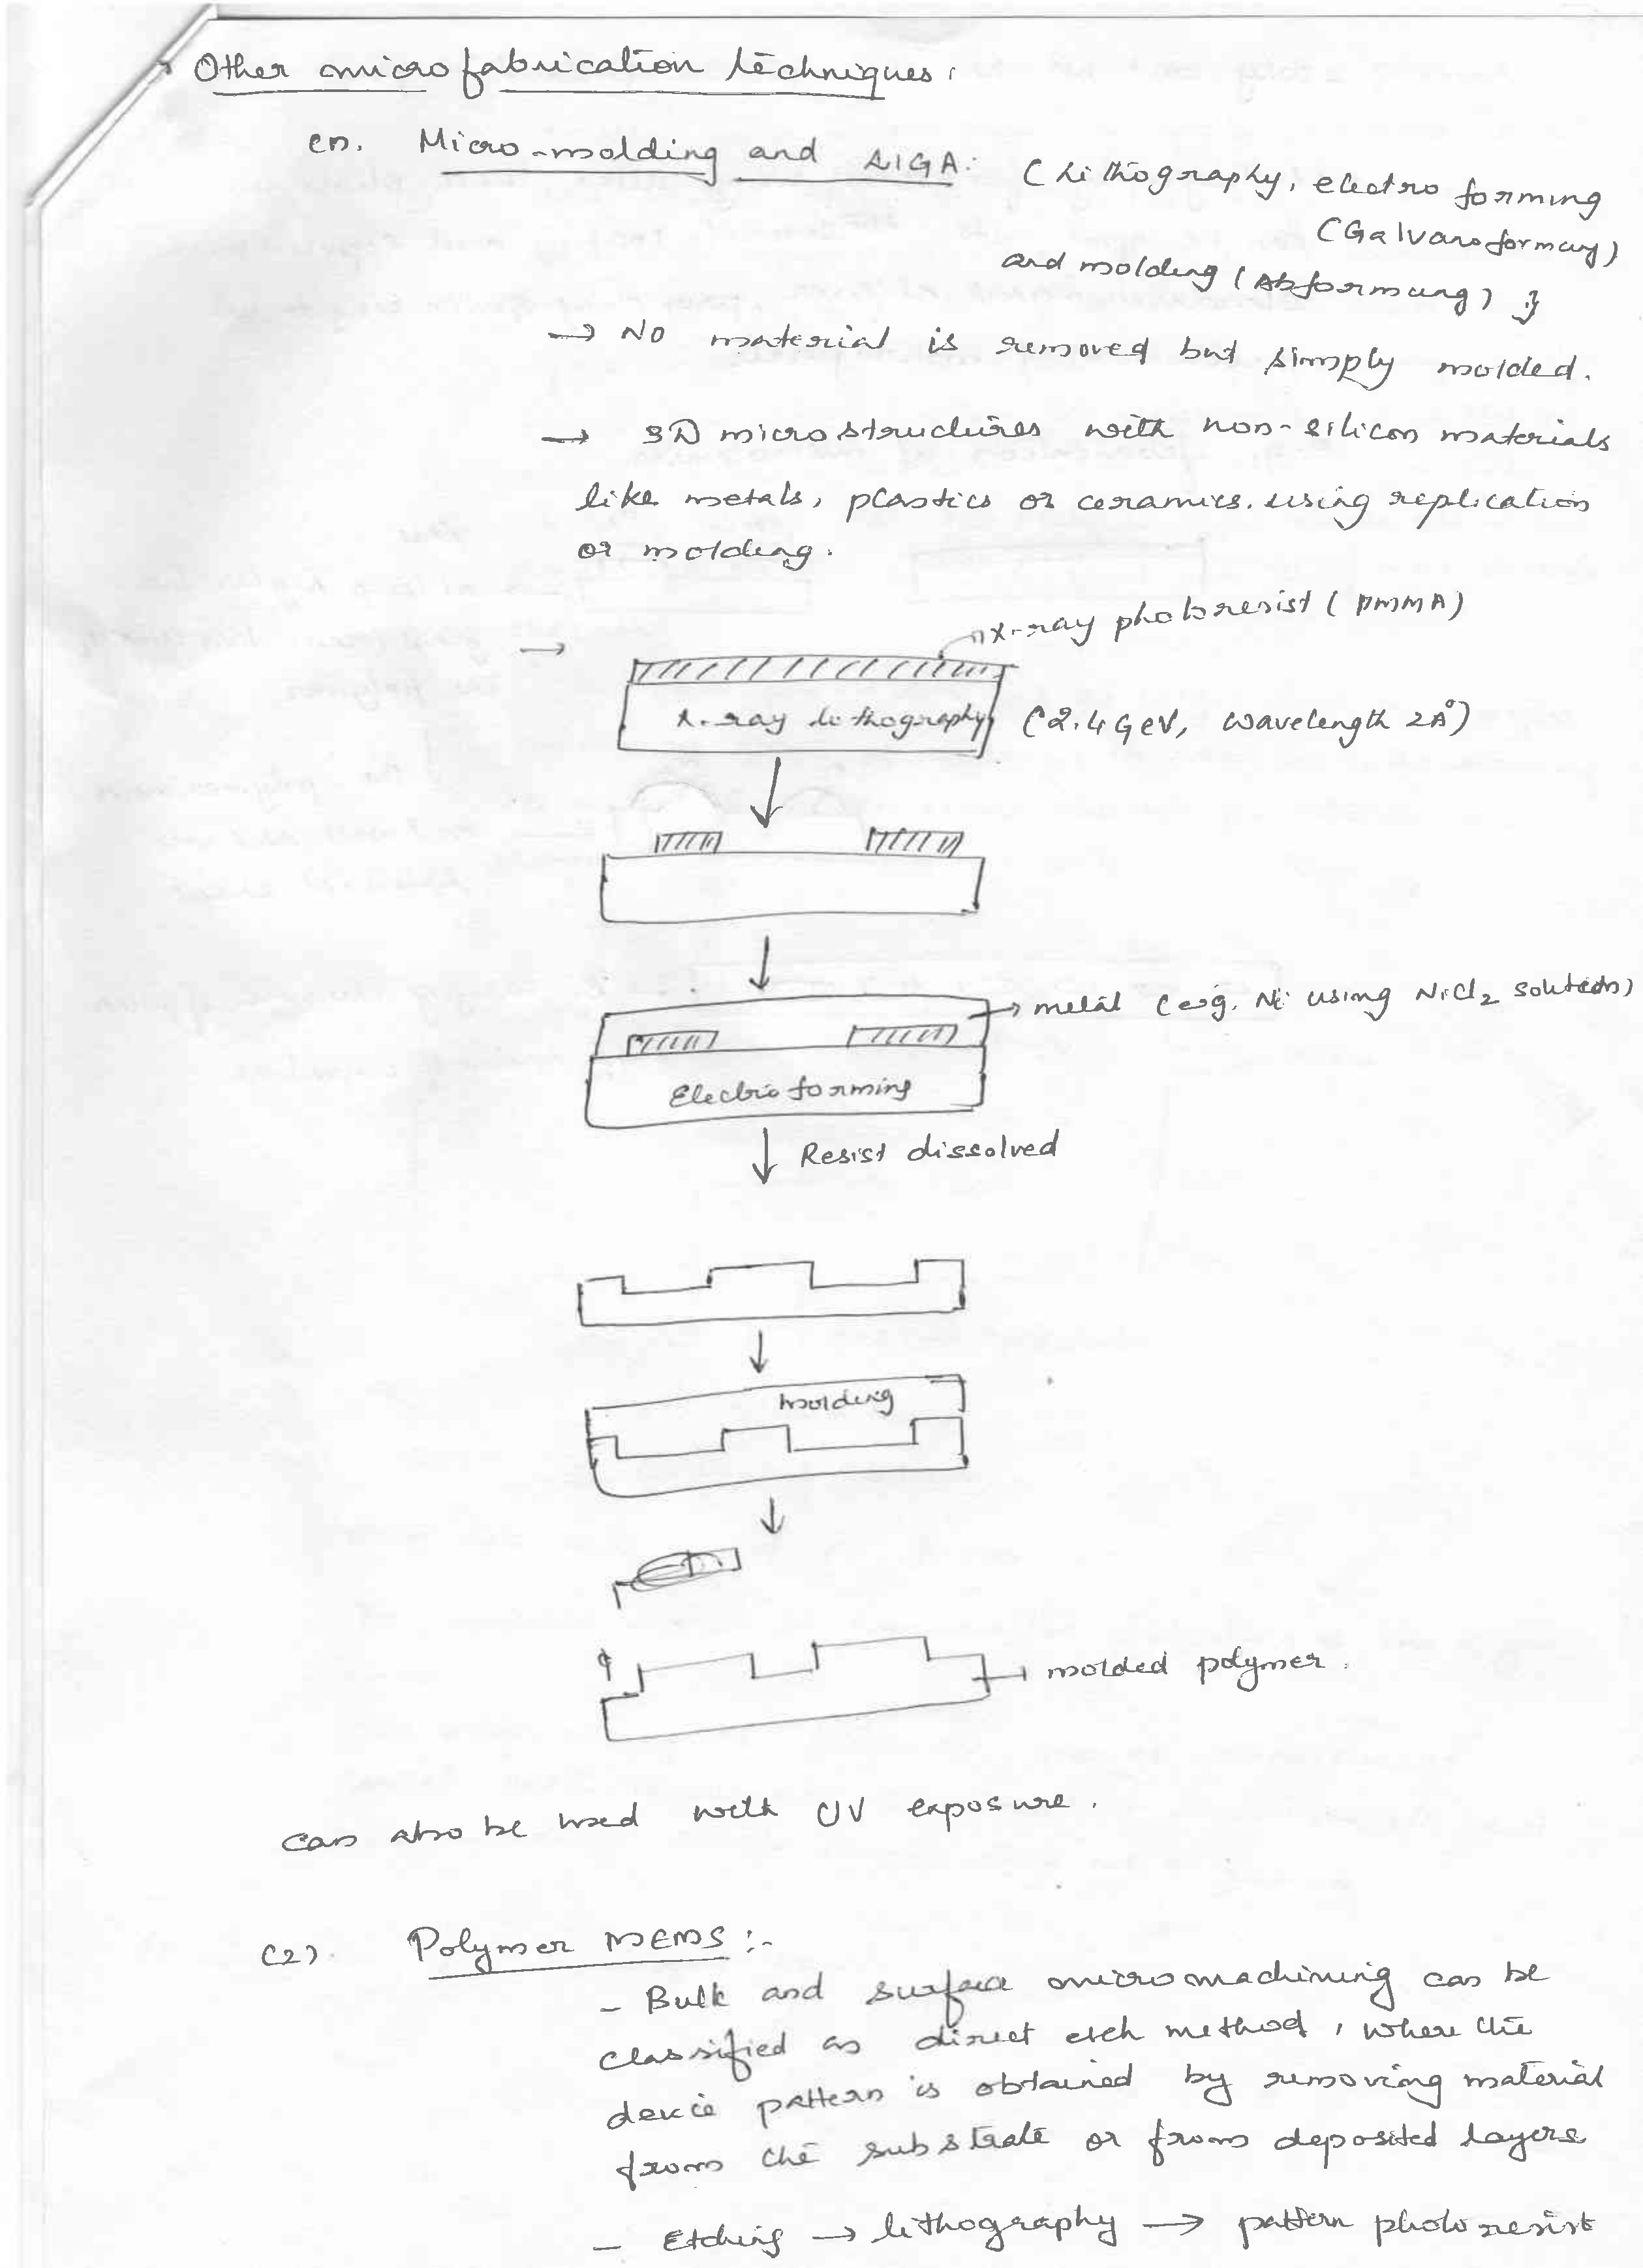 Other microfabrication techniques:
(1). Micro-molding and LIGA: (Lithography, electro forming
(Galvanoformung)
and molding (Abformung) }
→ No material is removed but simply molded.
→ 3D microstructures with non-silicon materials
like metals, plastics or ceramics. using replication
or molding.
→ X-ray photoresist (PMMA)
X-ray lithography (2.4 GeV, wavelength 2A°)
→ metal (e.g. Ni using NiCl2 solution)
Electro forming
Resist dissolved
Molding
→ molded polymer.
Can also be used with UV exposure.
(2). Polymer MEMS :-
- Bulk and surface micromachining can be
classified as direct etch method, where the
device pattern is obtained by removing material
from the substrate or from deposited layers
- Etching → lithography → pattern photoresist